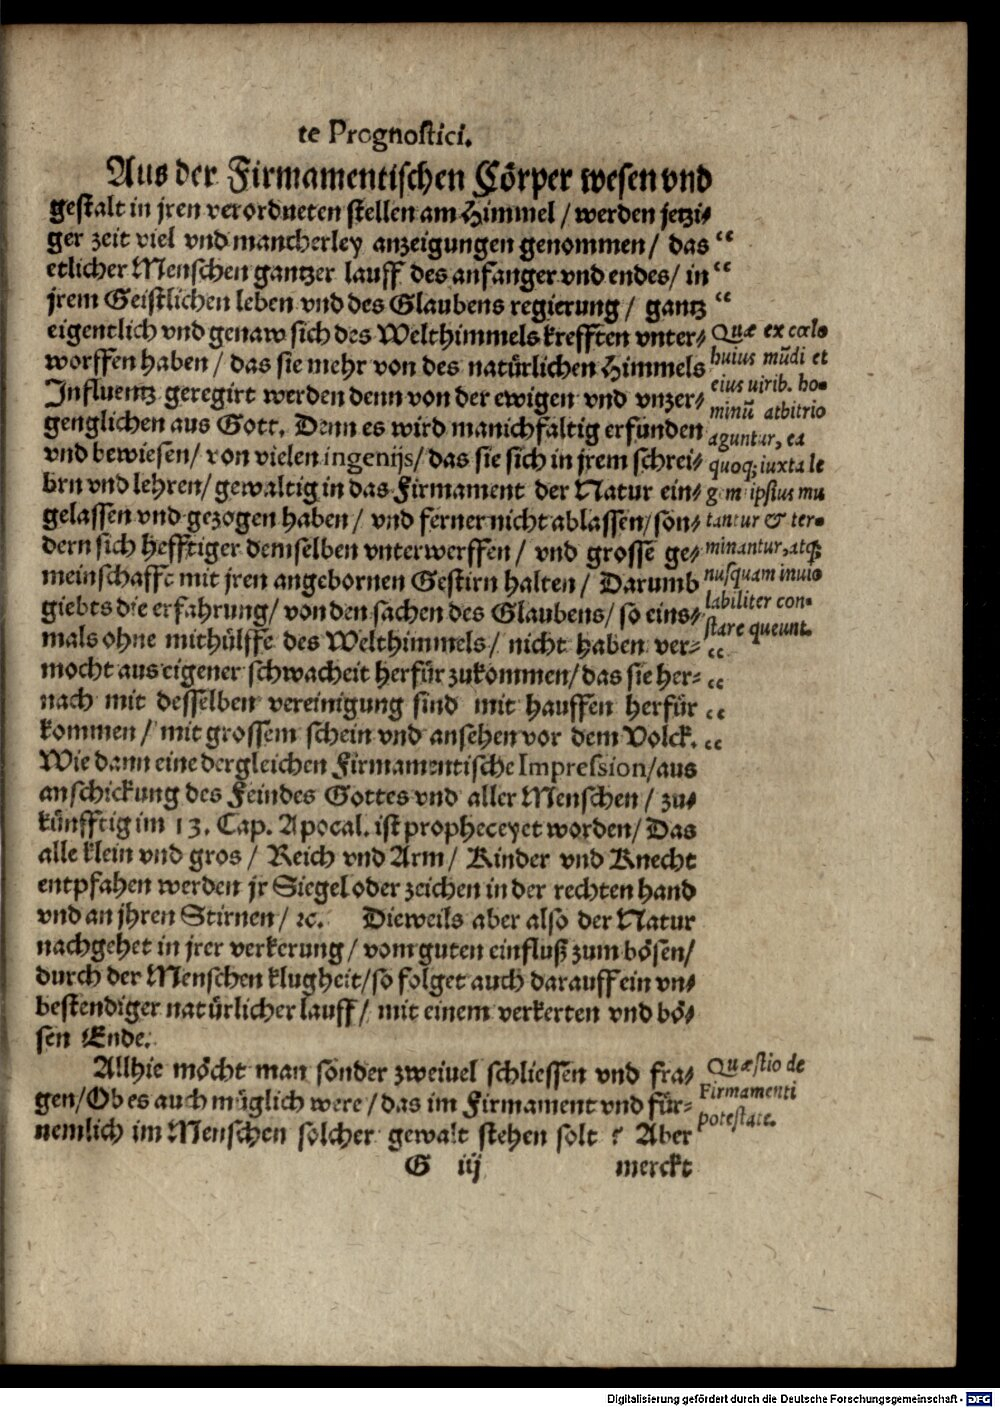 te Prognostici.
Aus der Firmamentischen Cörper wesen vnd
gestalt in jren verordneten stellen am Himmel / werden jetzi⸗
ger zeit viel vnd mancherley anzeigungen genommen / das “
etlicher Menschen gantzer lauff des anfanger vnd endes / in “
jrem Geistlichen leben vnd des Glaubens regierung / gantz “
eigentlich vnd genaw sich des Welthimmels krefften vnter⸗
worffen haben / das sie mehr von des natürlichen Himmels
Influentz geregirt werden denn von der ewigen vnd vnzer⸗
genglichen aus Gott. Denn es wird manichfaltig erfunden
vnd bewiesen / von vielen ingenijs / das sie sich in jrem schrei⸗
brn vnd lehren / gewaltig in das Firmament der Natur ein⸗
gelassen vnd gezogen haben / vnd ferner nicht ablassen / son⸗
dern sich hefftiger demselben vnterwerffen / vnd grosse ge⸗
meinschafft mit jren angebornen Gestirn halten / Darumb
giebts die erfahrung / von den sachen des Glaubens / so eins⸗
mals ohne mithülffe des Welthimmels / nicht haben ver⸗ “
mocht aus eigener schwacheit herfür zukommen / das sie her⸗ “
nach mit desselben vereinigung sind mit hauffen herfür “
kommen / mit grossem schein vnd ansehen vor dem Volck. “
Wie dann eine dergleichen Firmamentische Impression / aus
anschickung des Feindes Gottes vnd aller Menschen / zu⸗
künfftig im 13. Cap. Apocal. ist propheceyet worden / Das
alle klein vnd gros / Reich vnd Arm / Kinder vnd Knecht
entpfahen werden jr Siegel oder zeichen in der rechten hand
vnd an jhren Stirnen / ꝛc. Dieweils aber also der Natur
nachgehet in jrer verkerung / vom guten einfluß zum bösen /
durch der Menschen klugheit / so folget auch darauff ein vn⸗
bestendiger natürlicher lauff / mit einem verkerten vnd bö⸗
sen Ende.
Allhie möcht man sonder zweiuel schliessen vnd fra⸗
gen / Ob es auch müglich were / das im Firmament vnd für⸗
nemlich im Menschen solcher gewalt stehen solt ? Aber
G iij merckt
Quæ ex cœlo
huius mũdi et
eius uirib. ho⸗
minũ atbitrio
aguntur, ea
quoq; iuxta le
gem ipsius mu
tantur & ter⸗
minantur, atq;
nusquam inuio
labiliter con⸗
stare queunt.
Quæstio de
Firmamenti
potestate.
Digitalisierung gefördert durch die Deutsche Forschungsgemeinschaft - DFG